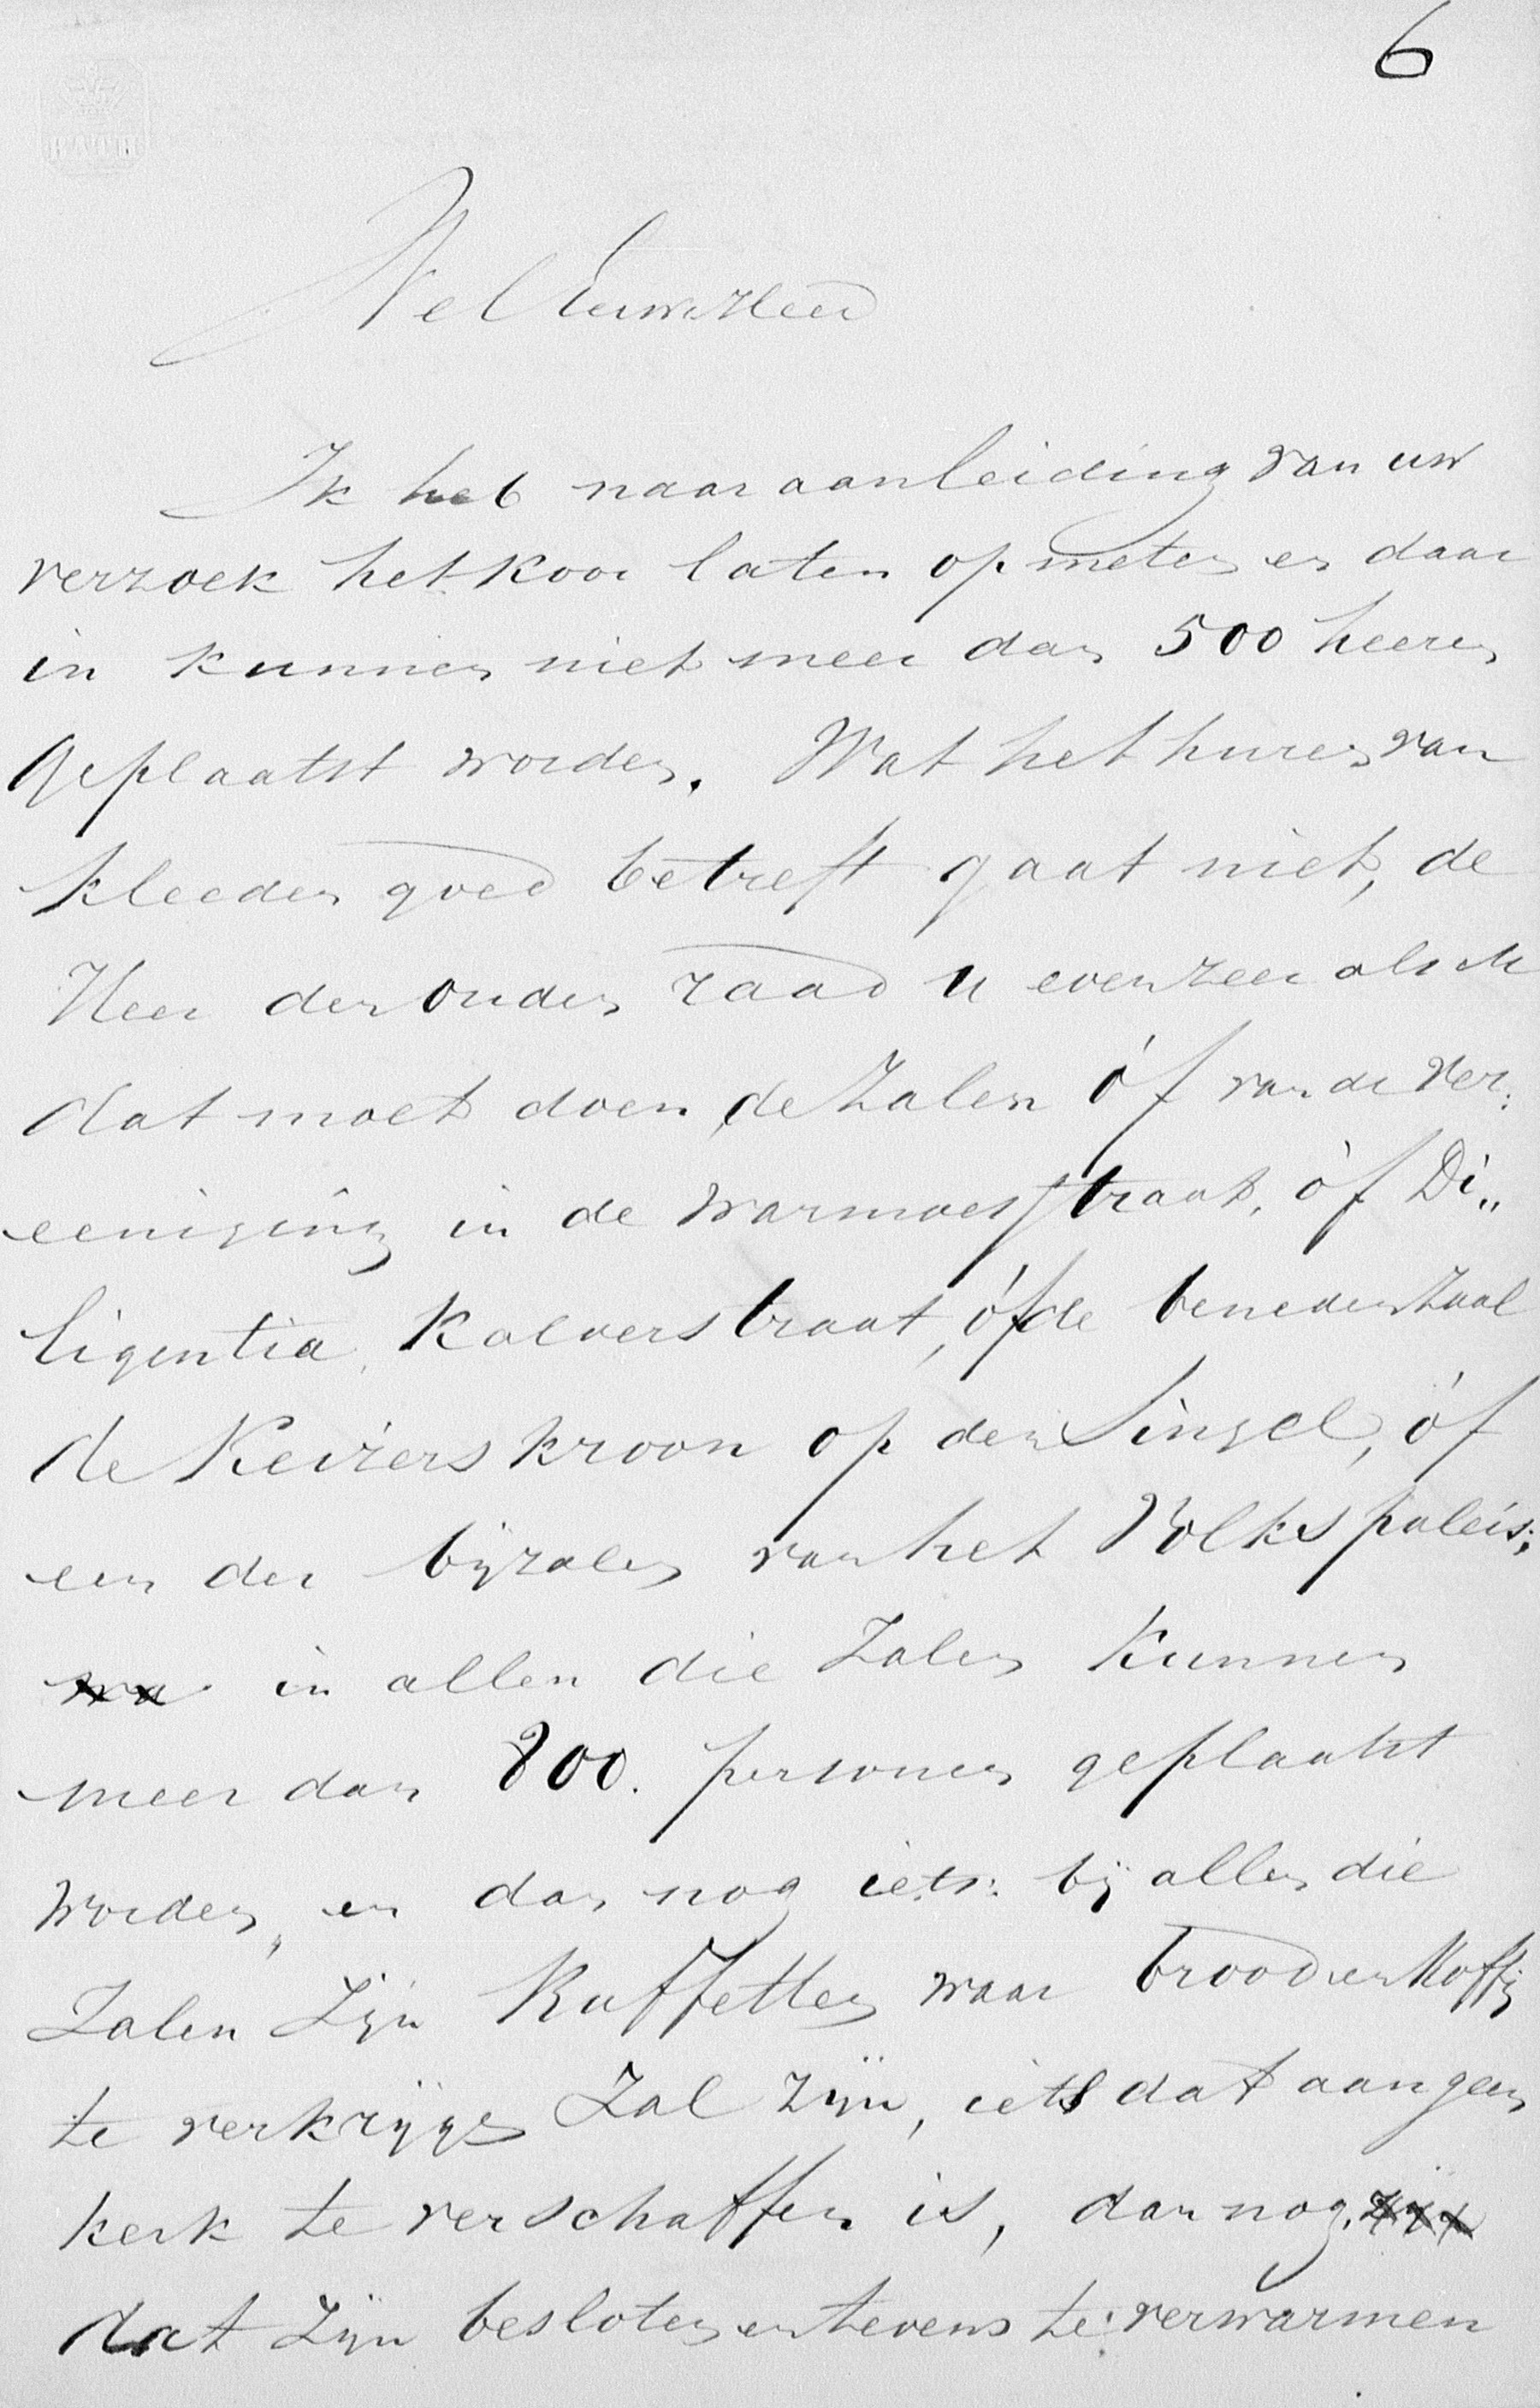 6
WelEerw. Heer
Ik heb naar aanleiding van uw
verzoek het koor laten opmeten en daar
in kunnen niet meer dan 500 heeren
geplaatst worden. Wat het huren van
kleeden goed betreft gaat niet, de
Heer den Ouden raad u evenzeer als ik
dat moet doen, de Zalen óf van de Ver:
eeniging in de Warmoesstraat, óf Di„
ligentia, Kalverstraat, óf de benedenzaal
de Keizerskroon op den Singel, óf
een der bijzalen van het Volkspaleis;
in allen die Zalen kunnen
meer dan 800. personen geplaatst
worden, en dan nog iets: bij allen die
Zalen zijn Buffetten waar brood en Koffij
te verkrijgen Zal zijn, iets dat aan geen
kerk te verschaffen is, dan nog
dat zijn besloten en tevens te verwarmen